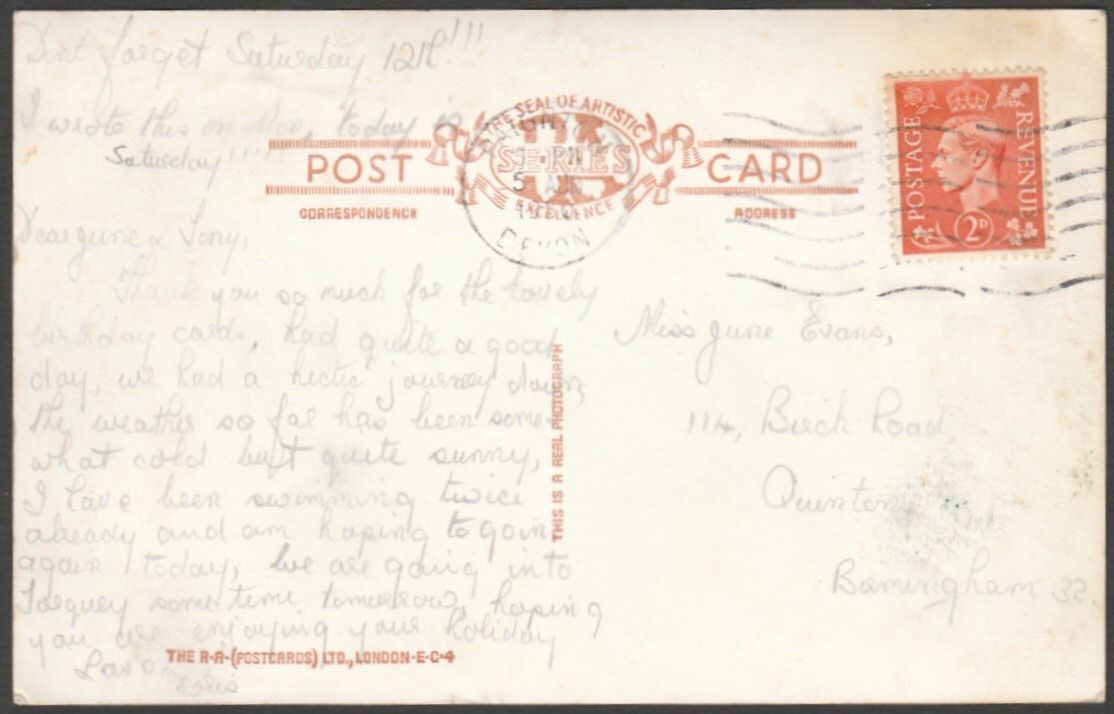 Dont forget Saturday 12th!!!
I wrote this on Mon, today is
Saturday!!!!
THE SEAL OF ARTISTIC
EXCELLENCE
SERIES
POST CARD
CORRESPONDENCE ADDRESS
5 AUG
1950
DEVON
POSTAGE REVENUE
2D
Dear June & Tony,
Thank you so much for the lovely
birthday cards, had quite a good
day, we had a hectic journey down,
the weather so far has been some-
what cold but quite sunny,
I have been swimming twice
already and am hoping to go in
again today, we are going into
Torquey some time tomorrow, hoping
you are enjoying your holiday
Love
Doris
THIS IS A REAL PHOTOGRAPH
Miss June Evans,
114, Birch Road,
Quinton,
Birmingham 32.
THE R-A-(POSTCARDS) LTD., LONDON-E-C-4